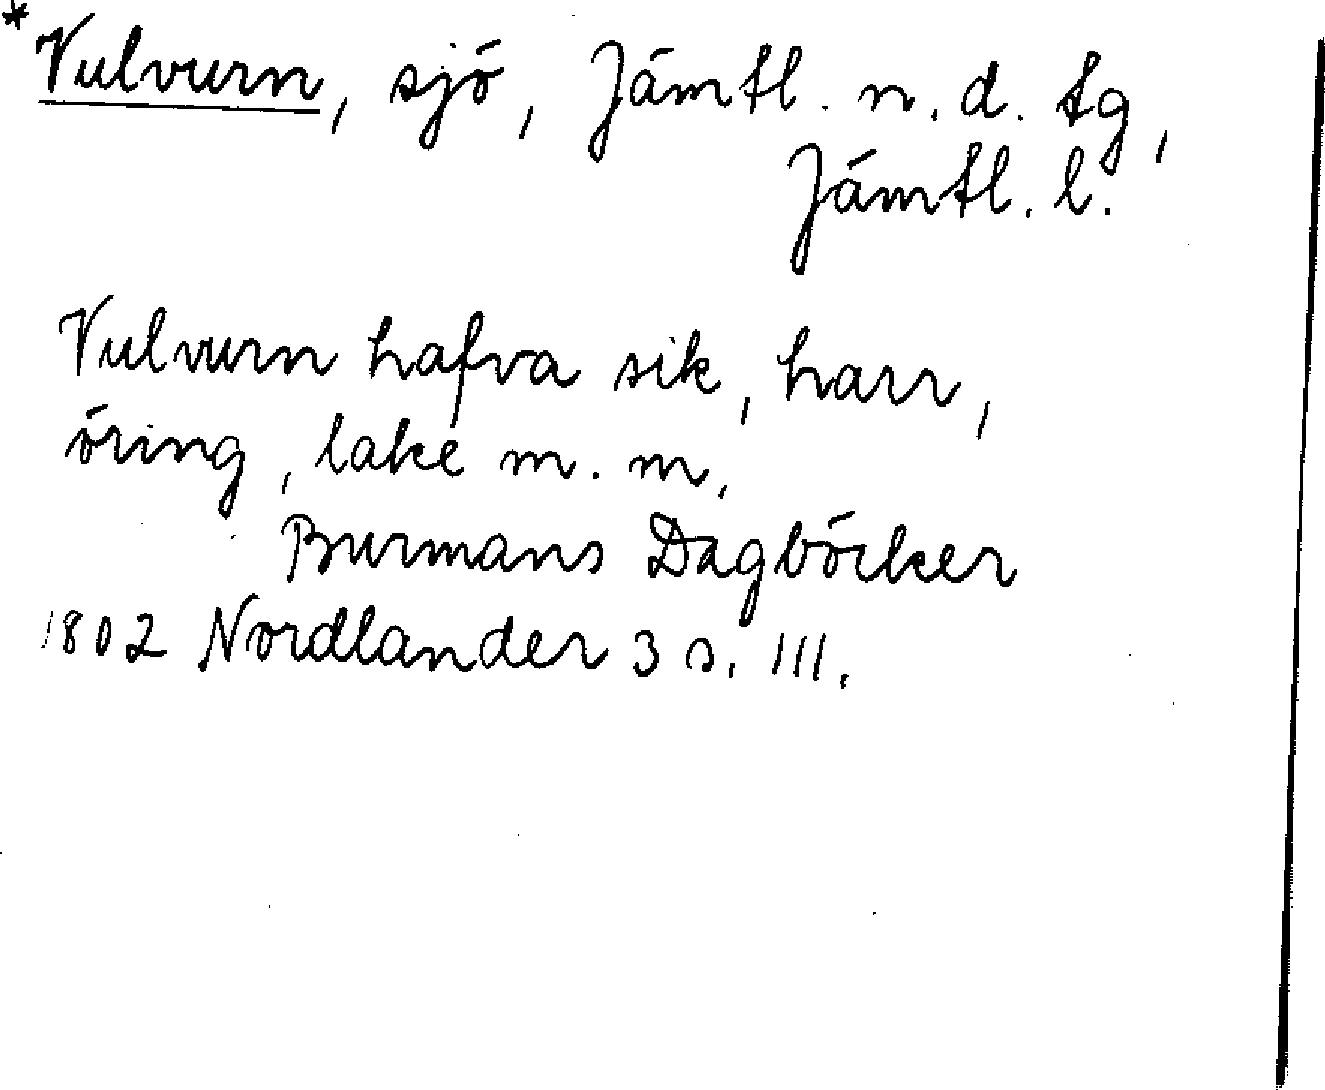 *Vulvurn, sjö, Jämtl. n. d. tg,
Jämtl. l.
Vulvurn hafva sik, harr,
öring, lake m. m.
Burmans Dagböcker
1802 Nordlander 3 s. 111.